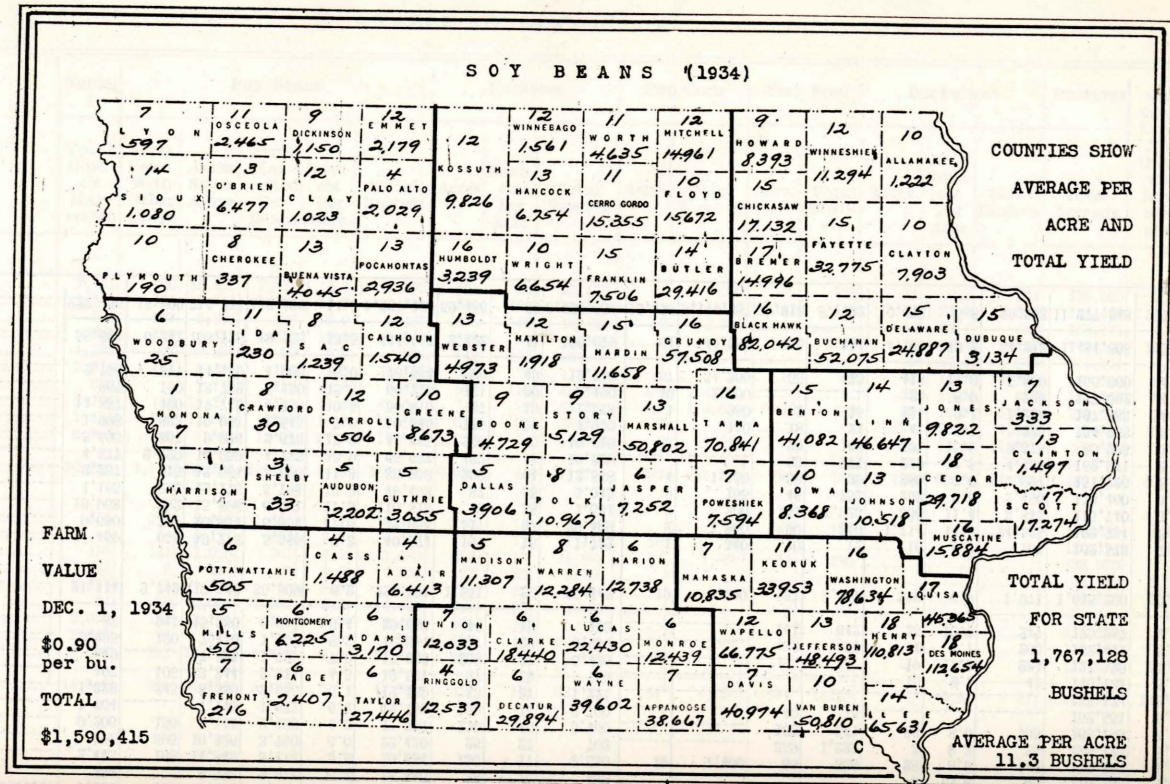 SOY BEANS (1934)
COUNTIES SHOW
AVERAGE PER
ACRE AND
TOTAL YIELD
7
LYON
597
11
OSCEOLA
2,465
9
DICKINSON
1,150
12
EMMET
2,179
12
KOSSUTH
9,826
12
WINNEBAGO
1,561
11
WORTH
4,635
12
MITCHELL
14,961
9
HOWARD
8,393
12
WINNESHIEK
11,294
10
ALLAMAKEE
1,222
14
SIOUX
1,080
13
O'BRIEN
6,477
12
CLAY
1,023
4
PALO ALTO
2,029
13
HANCOCK
6,754
11
CERRO GORDO
15,355
10
FLOYD
15672
15
CHICKASAW
17,132
15
FAYETTE
32,775
10
CLAYTON
7,903
10
PLYMOUTH
190
8
CHEROKEE
337
13
BUENA VISTA
4,045
13
POCAHONTAS
2,936
16
HUMBOLDT
3,239
10
WRIGHT
6,654
15
FRANKLIN
7,506
14
BUTLER
29,416
17
BREMER
14,996
6
WOODBURY
25
11
IDA
230
8
SAC
1,239
12
CALHOUN
1,540
13
WEBSTER
4973
12
HAMILTON
1,918
15
HARDIN
11,658
16
GRUNDY
57,508
16
BLACK HAWK
82,042
12
BUCHANAN
52,075
15
DELAWARE
24,887
15
DUBUQUE
3,134
MONONA
7
8
CRAWFORD
30
12
CARROLL
506
10
GREENE
8,673
9
BOONE
4,729
9
STORY
5,129
13
MARSHALL
50,802
16
TAMA
70,841
15
BENTON
41,082
14
LINN
46,647
13
JONES
9,822
7
JACKSON
333
13
CLINTON
1,497
HARRISON
3
SHELBY
33
5
AUDUBON
2202
5
GUTHRIE
3,055
5
DALLAS
3,906
8
POLK
10,967
6
JASPER
7,252
7
POWESHIEK
7,594
10
IOWA
8,368
13
JOHNSON
10,518
18
CEDAR
29,718
17
SCOTT
17,274
16
MUSCATINE
15,884
6
POTTAWATTAMIE
505
4
CASS
1,488
4
ADAIR
6,413
5
MADISON
11,307
8
WARREN
12,284
6
MARION
12,738
7
MAHASKA
10,835
11
KEOKUK
33953
16
WASHINGTON
78,634
17
LOUISA
45363
5
MILLS
50
6
MONTGOMERY
6,225
6
ADAMS
3,170
7
UNION
12,033
6
CLARKE
18,440
6
LUCAS
22,430
6
MONROE
12,439
12
WAPELLO
66,775
13
JEFFERSON
48,493
18
HENRY
110,813
18
DES MOINES
112654
7
FREMONT
216
6
PAGE
2,407
6
TAYLOR
27,446
4
RINGGOLD
12,537
6
DECATUR
29,894
6
WAYNE
39,602
7
APPANOOSE
38,667
7
DAVIS
40,974
10
VAN BUREN
50,810
14
LEE
65,631
FARM
VALUE
DEC. 1, 1934
$0.90
per bu.
TOTAL
$1,590,415
TOTAL YIELD
FOR STATE
1,767,128
BUSHELS
C
AVERAGE PER ACRE
11.3 BUSHELS